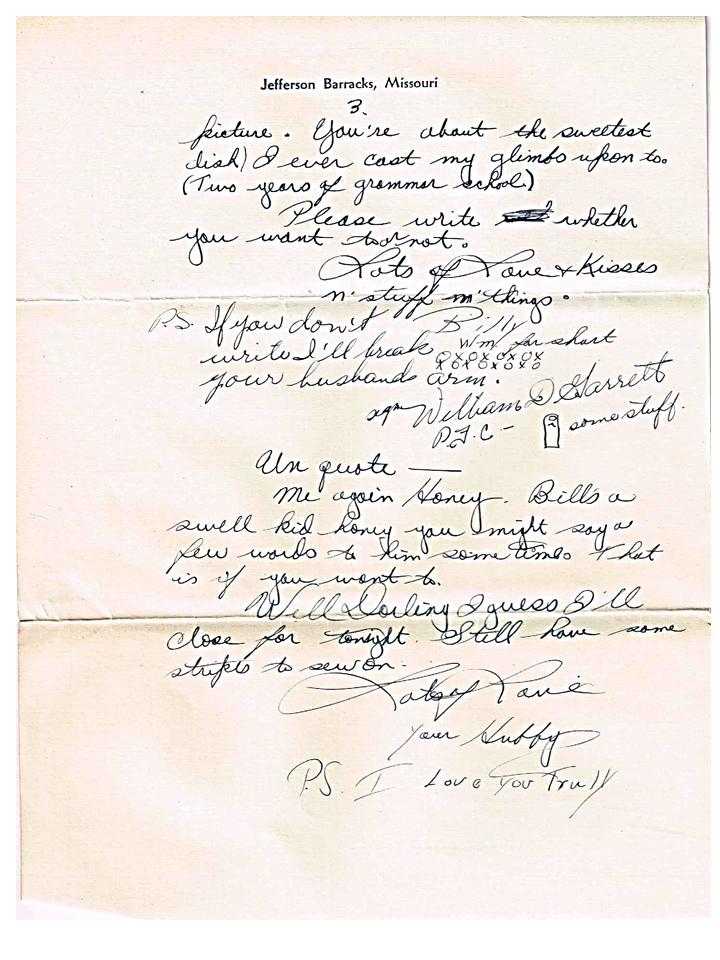 Jefferson Barracks, Missouri
3.
picture. You're about the sweetest
dish) I ever cast my glimbs upon to.
(Two years of grammar school.)
Please write whether
you want to or not.
Lots of Love & Kisses
n' stuff n' things.
Billy
Wm for short
OXOXOXOX
XOXOXOXO
P.S. If you don't
write I'll break
your husbands arm.
sgn William D Garrett
P.F.C - some stuff.
Un quote —
Me again Honey. Bill's a
swell kid honey you might say a
few words to him sometimes that
is if you want to.
Well Darling I guess I'll
close for tonight. Still have some
stripes to sew on.
Lots of Love
Your Hubby
P.S. I Love You Truly